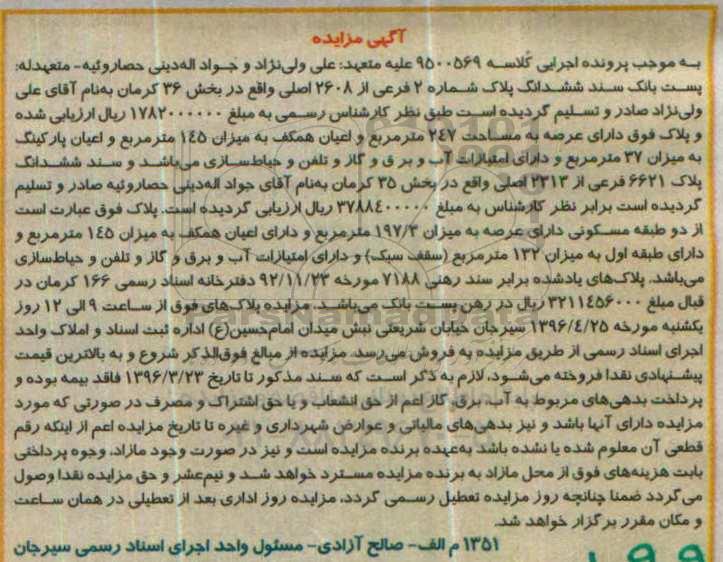 آگهی مزایده
به موجب پرونده اجرایی کلاسه ۹۵۰۰۵۶۹ علیه متعهد: علی ولی‌نژاد و جواد اله‌دینی حصاروئیه- متعهدله:
پست بانک سند ششدانگ پلاک شماره ۲ فرعی از ۲۶۰۸ اصلی واقع در بخش ۳۶ کرمان به‌نام آقای علی
ولی‌نژاد صادر و تسلیم گردیده است طبق نظر کارشناس رسمی به مبلغ ۱۷۸۲۰۰۰۰۰۰ ریال ارزیابی شده
و پلاک فوق دارای عرصه به مساحت ۲۴۷ مترمربع و اعیان همکف به میزان ۱۴۵ مترمربع و اعیان پارکینگ
به میزان ۳۷ مترمربع و دارای امتیازات آب و برق و گاز و تلفن و حیاط‌سازی می‌باشد و سند ششدانگ
پلاک ۶۶۲۱ فرعی از ۲۳۱۳ اصلی واقع در بخش ۳۵ کرمان به‌نام آقای جواد اله‌دینی حصاروئیه صادر و تسلیم
گردیده است برابر نظر کارشناس به مبلغ ۳۷۸۸۴۰۰۰۰۰ ریال ارزیابی گردیده است. پلاک فوق عبارت است
از دو طبقه مسکونی دارای عرصه به میزان ۱۹۷/۳ مترمربع و دارای اعیان همکف به میزان ۱۴۵ مترمربع و
دارای طبقه اول به میزان ۱۳۲ مترمربع (سقف سبک) و دارای امتیازات آب و برق و گاز و تلفن و حیاط‌سازی
می‌باشد. پلاک‌های یادشده برابر سند رهنی ۷۱۸۸ مورخه ۹۲/۱۱/۲۳ دفترخانه اسناد رسمی ۱۶۶ کرمان در
قبال مبلغ ۳۲۱۱۴۵۶۰۰۰ ریال در رهن پست بانک می‌باشد. مزایده پلاک‌های فوق از ساعت ۹ الی ۱۲ روز
یکشنبه مورخه ۱۳۹۶/۴/۲۵ سیرجان خیابان شریعتی نبش میدان امام‌حسین(ع) اداره ثبت اسناد و املاک واحد
اجرای اسناد رسمی از طریق مزایده به فروش می‌رسد. مزایده از مبالغ فوق‌الذکر شروع و به بالاترین قیمت
پیشنهادی نقدا فروخته می‌شود، لازم به ذکر است که سند مذکور تا تاریخ ۱۳۹۶/۳/۲۳ فاقد بیمه بوده و
پرداخت بدهی‌های مربوط به آب، برق، گاز اعم از حق انشعاب و یا حق اشتراک و مصرف در صورتی که مورد
مزایده دارای آنها باشد و نیز بدهی‌های مالیاتی و عوارض شهرداری و غیره تا تاریخ مزایده اعم از اینکه رقم
قطعی آن معلوم شده یا نشده باشد به‌عهده برنده مزایده است و نیز در صورت وجود مازاد، وجوه پرداختی
بابت هزینه‌های فوق از محل مازاد به برنده مزایده مسترد خواهد شد و نیم‌عشر و حق مزایده نقدا وصول
می‌گردد ضمنا چنانچه روز مزایده تعطیل رسمی گردد، مزایده روز اداری بعد از تعطیلی در همان ساعت
و مکان مقرر برگزار خواهد شد.
۱۳۵۱ م الف- صالح آزادی- مسئول واحد اجرای اسناد رسمی سیرجان